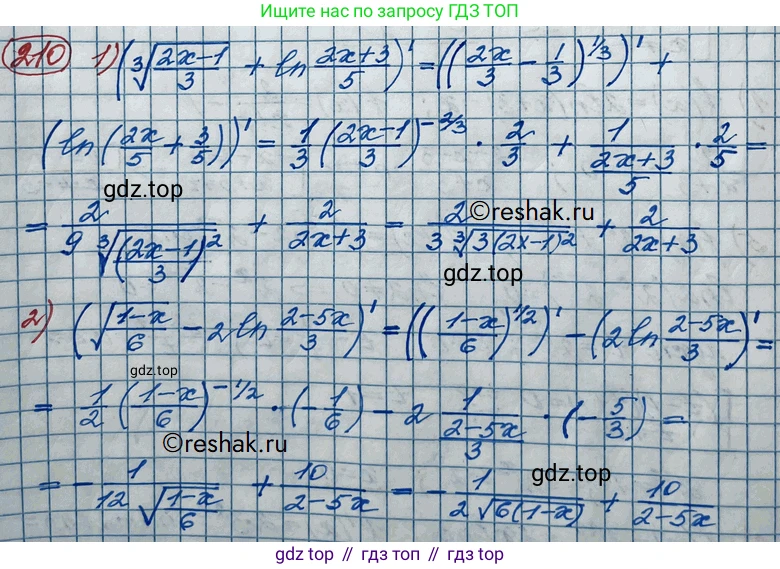 Ищите нас по запросу ГДЗ ТОП
210 1) (∛((2x-1)/3) + ln (2x+3)/5)' = ((2x/3 - 1/3)^(1/3))' +
(ln(2x/5 + 3/5))' = 1/3 ((2x-1)/3)^(-2/3) · 2/3 + 1/((2x+3)/5) · 2/5 =
gdz.top
= 2/(9∛((2x-1)/3)²) + 2/(2x+3) = 2/(3∛(3(2x-1)²)) + 2/(2x+3)
©reshak.ru
gdz.top
2) (√((1-x)/6) - 2 ln (2-5x)/3)' = (((1-x)/6)^(1/2))' - (2 ln (2-5x)/3)' =
gdz.top
= 1/2 ((1-x)/6)^(-1/2) · (-1/6) - 2 1/((2-5x)/3) · (-5/3) =
©reshak.ru
gdz.top
= - 1/(12√((1-x)/6)) + 10/(2-5x) = - 1/(2√(6(1-x))) + 10/(2-5x)
gdz.top // гдз топ // gdz.top